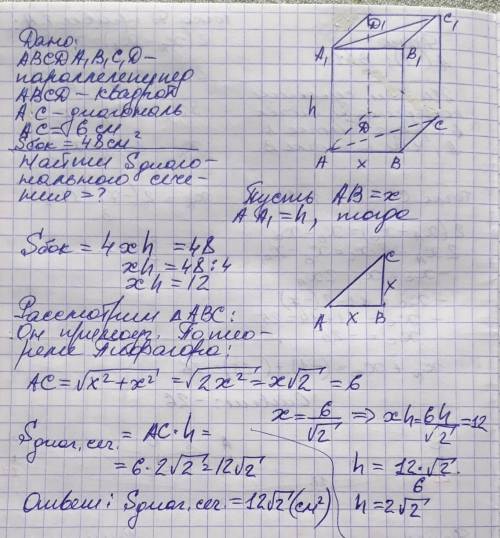 Дано:
ABCDA₁B₁C₁D-
параллелепипед
ABCD - квадрат
A.C - диагональ
AC = 6 см
Sбок = 48 см²
Найти Sдиаго-
нального сече-
ния = ?
D₁ C₁
A₁ B₁
h
D C
A x B
Пусть AB = x
AA₁ = h, тогда
Sбок = 4xh = 48
xh = 48:4
xh = 12
C
x
A x B
Рассмотрим ΔABC:
Он прямоуг. По тео-
реме Пифагора:
AC = √x²+x² = √2x² = x√2 = 6
x = 6/√2 => xh = 6h/√2 = 12
Sдиаг.сеч. = AC·h =
= 6·2√2 = 12√2
h = 12·√2
6
h = 2√2
Ответ: Sдиаг.сеч. = 12√2 (см²)